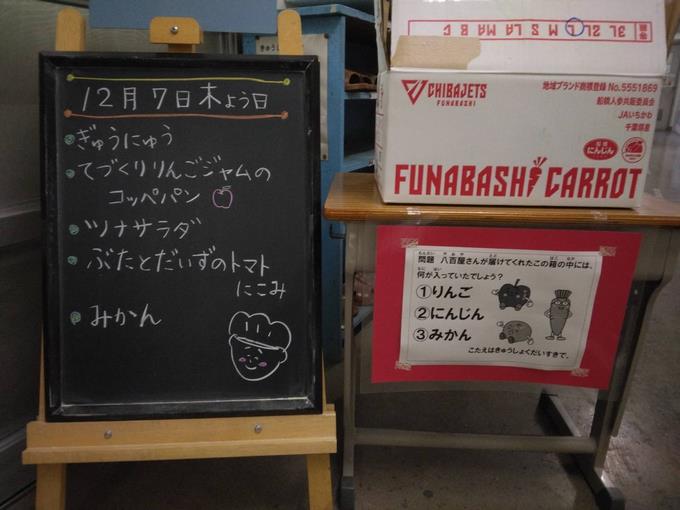 12月7日木よう日
ぎゅうにゅう
てづくりりんごジャムの
コッペパン
ツナサラダ
ぶたとだいずのトマト
にこみ
みかん
3L 2L L M S LA MA B C
CHIBAJETS
FUNABASHI
地域ブランド商標登録 No.5551869
船橋人参共販委員会
JAいちかわ
千葉県産
にんじん
FUNABASHI CARROT
問題 八百屋さんが届けてくれたこの箱の中には、
何が入っていたでしょう?
①りんご
②にんじん
③みかん
こたえはきゅうしょくだいすきで。